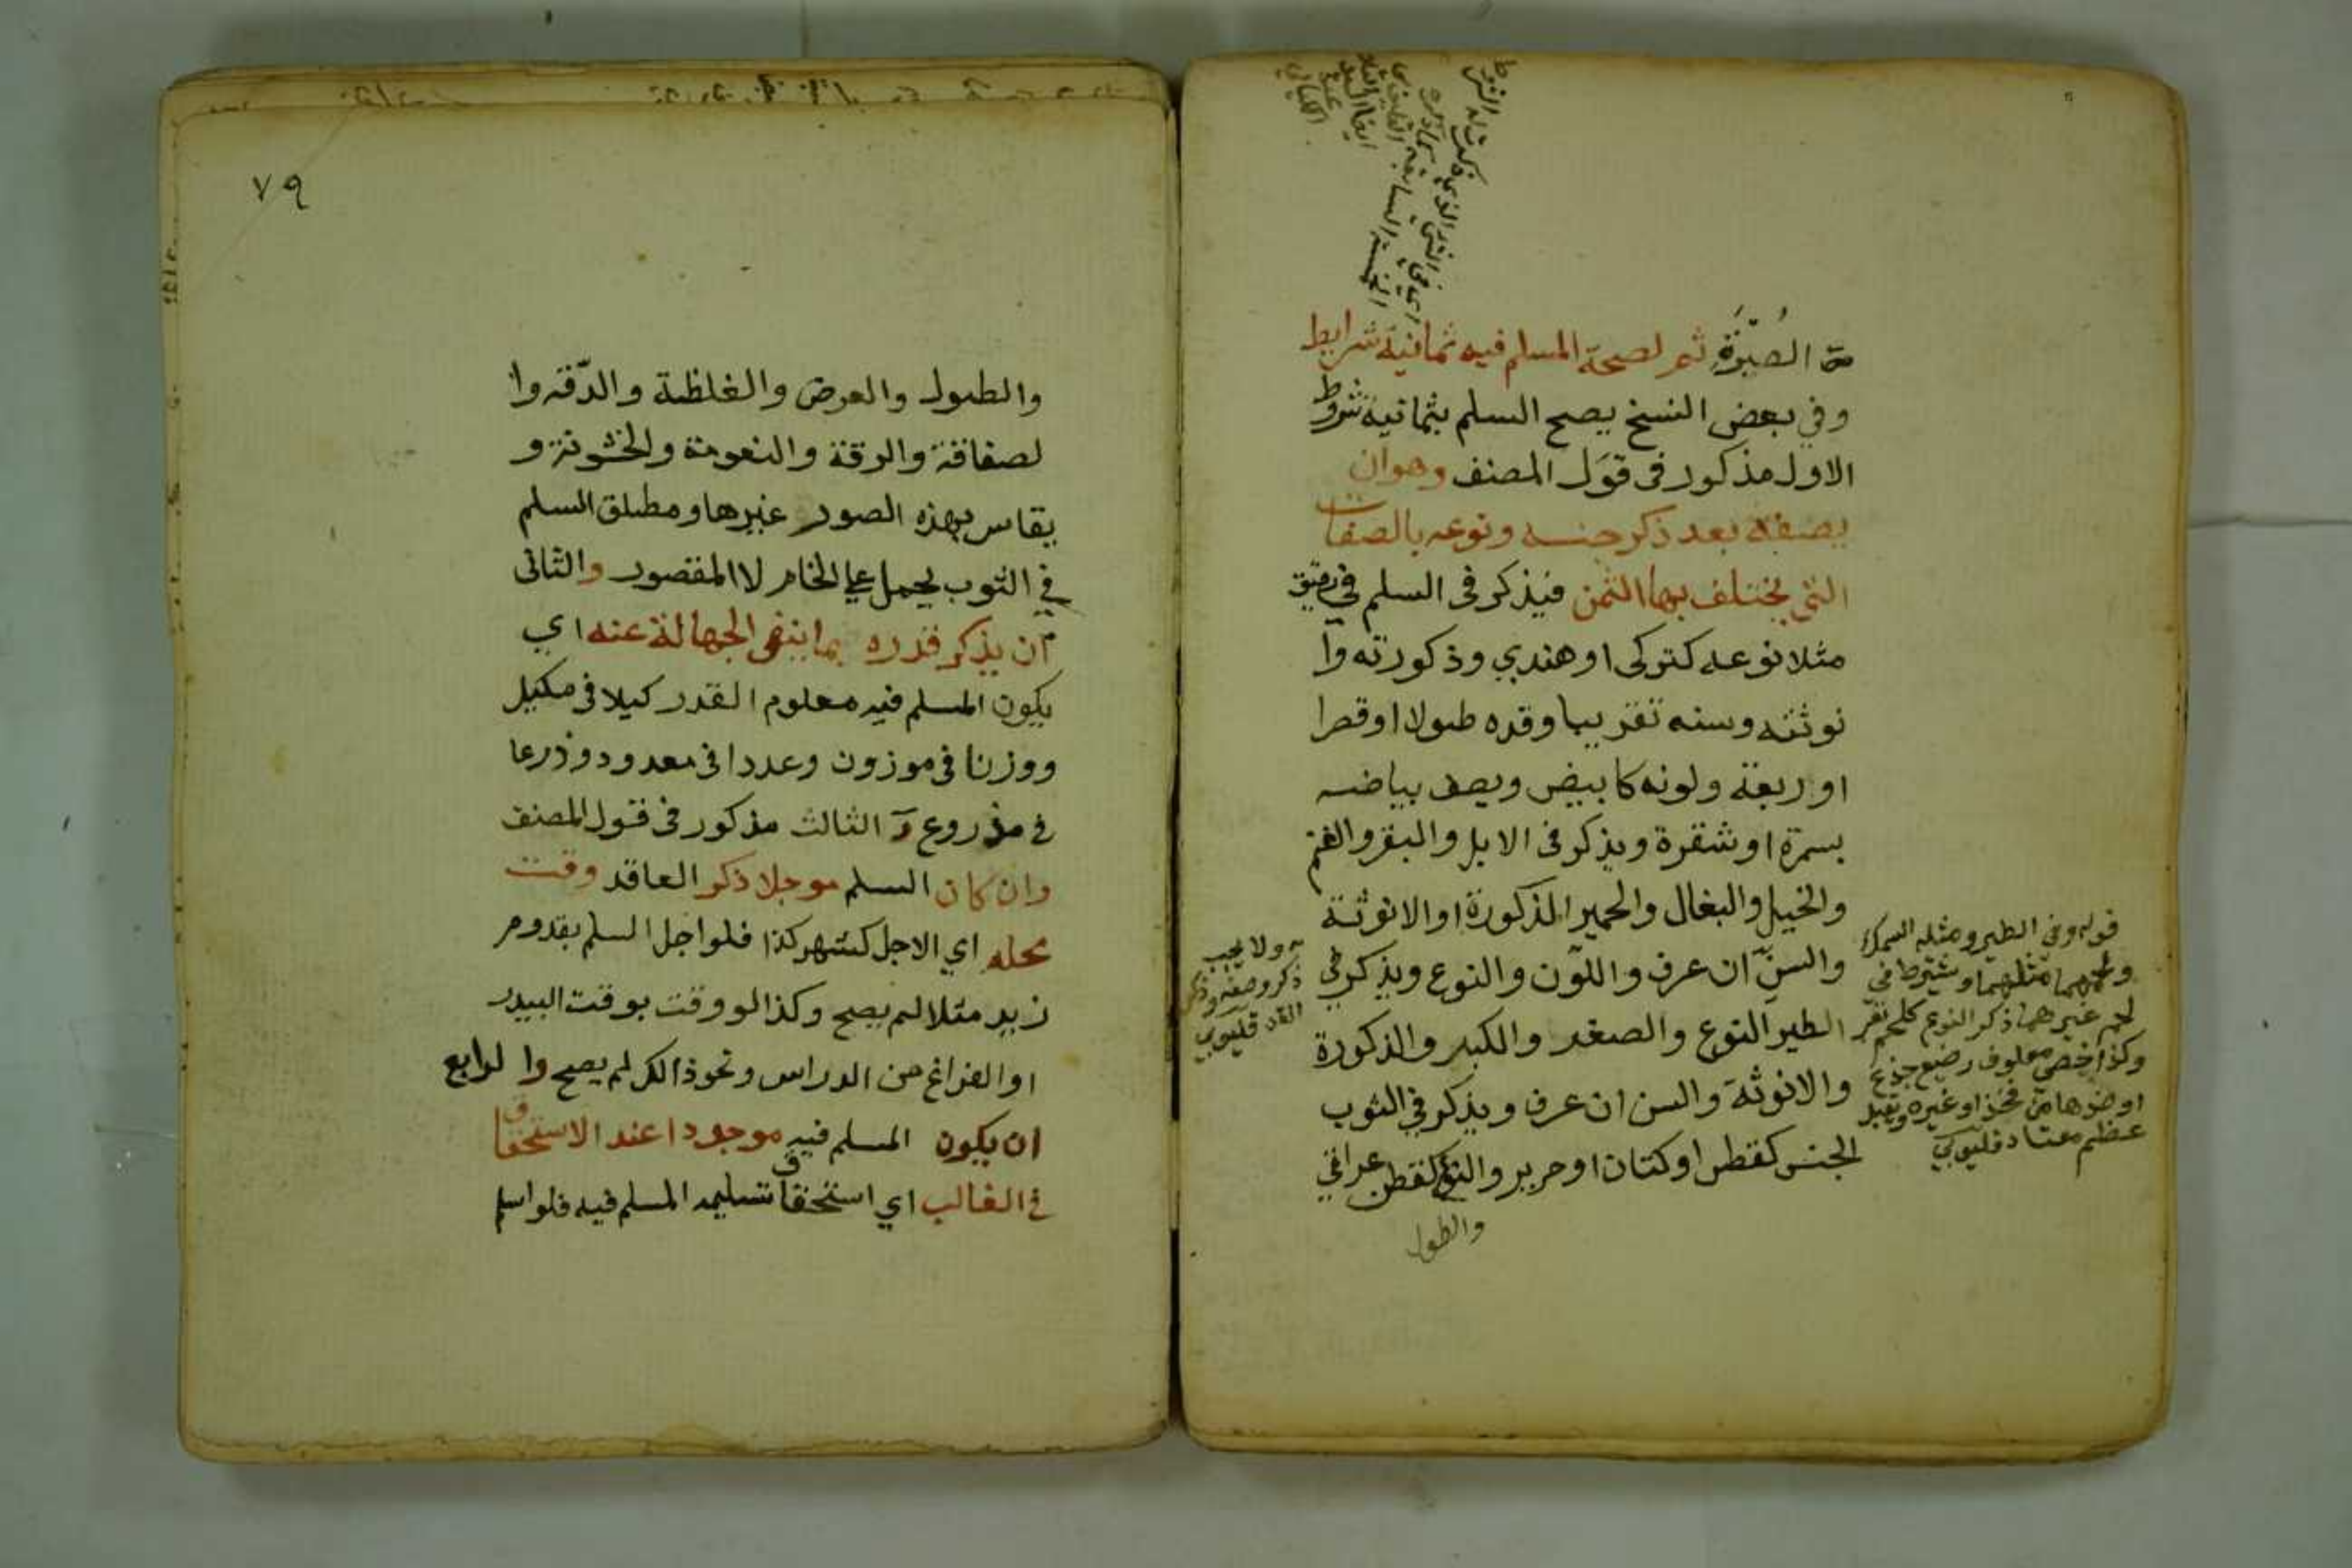 من الصُبْرَة ثم لصحة المسلم فيه ثمانية شرايط
وفي بعض النسخ يصح السلم بثمانية شروط
الاول مذكور في قول المصنف وهو ان
يصفه بعد ذكر جنسه ونوعه بالصفات
التي يختلف بها الثمن فيذكر في السلم في رقيق
مثلا نوعه كتركى او هندي وذكورته وا
نوثته وسنه تقريبا وقده طولا او قصرا
او ربعة ولونه كابيض ويصف بياضه
بسمرة او شقرة ويذكر في الابل والبقر والغنم
والخيل والبغال والحمير الذكورة او الانوثة
والسن ان عرف واللون والنوع ويذكر في
الطير النوع والصغر والكبر والذكورة
والانوثة والسن ان عرف ويذكر في الثوب
الجنس كقطن او كتان او حرير والنوع كقطن عراقي
والطول
قوله وفي الطير ومثله السمك
ولحمهما مثلهما ويشترط في
لحم غيرهما ذكر النوع كلحم بقر
وكذا خصي معلوف رضيع جذع
او ضدها من فخذ او غيره ويقبل
عظم معتاد قليوبي
ولا يجب
ذكر وصفه وذكر
القد قليوبي
٧٩
والطول والعرض والغلظة والدّقه وا
لصفاقة والرقة والنعومة والخشونة و
يقاس بهذه الصور غيرها ومطلق السلم
في الثوب يحمل علي الخام لا المقصور والثانى
ان يذكر قدره بما ينفى الجهالة عنه اي
يكون المسلم فيه معلوم القدر كيلا في مكيل
ووزنا في موزون وعددا في معدود وذرعا
في مذروع و الثالث مذكور في قول المصنف
وان كان السلم موجلا ذكر العاقد وقت
محله اي الاجل كشهر كذا فلو اجل السلم بقدوم
زيد مثلا لم يصح وكذا لو وقت بوقت البيدر
او الفراغ من الدراس ونحو ذالك لم يصح وا لرابع
ان يكون المسلم فيه موجودا عند الاستحقاق
في الغالب اي استحقاق تسليمه المسلم فيه فلو اسلم